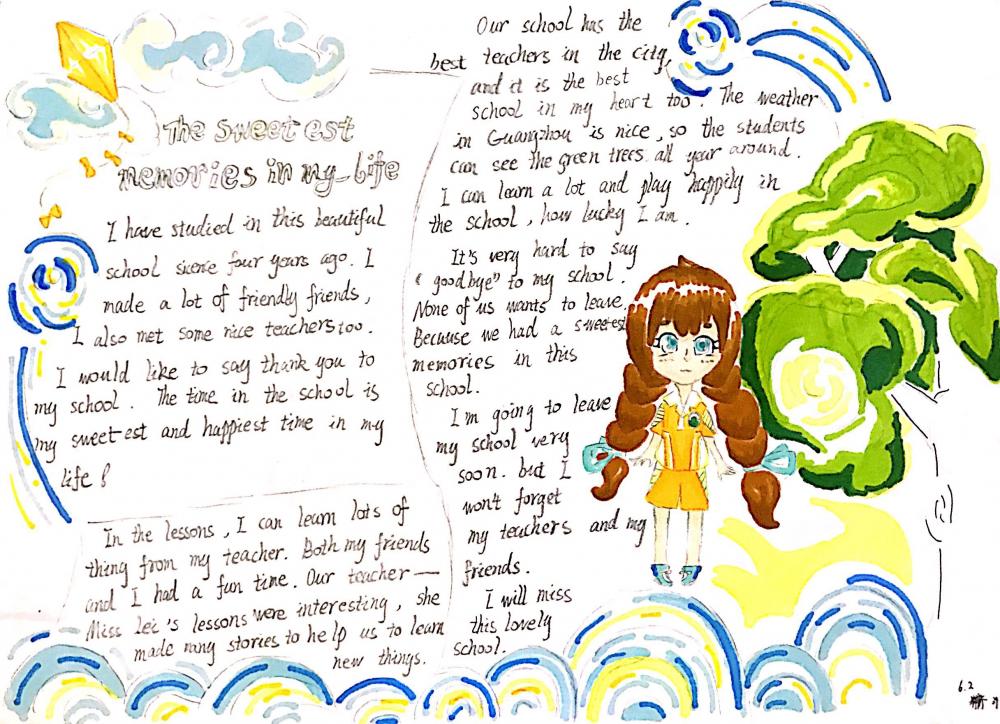 The sweet est
memories in my Life
I have studied in this beautiful
school sicnce four years ago. I
made a lot of friendly friends,
I also met some nice teachers too.
I would like to say thank you to
my school. The time in the school is
my sweet-est and happiest time in my
life!
In the lessons, I can learn lots of
thing from my teacher. Both my friends
and I had a fun time. Our teacher—
Miss Lei's lessons were interesting, she
made many stories to help us to learn
new things.
Our school has the
best teachers in the city,
and it is the best
school in my heart too. The weather
in Guangzhou is nice, so the students
can see the green trees all year around.
I can learn a lot and play happily in
the school, how lucky I am.
It's very hard to say
"goodbye" to my school.
None of us wants to leave.
Because we had a sweetest
memories in this
school.
I'm going to leave
my school very
soon. but I
won't forget
my teachers and my
friends.
I will miss
this lovely
school.
6.2